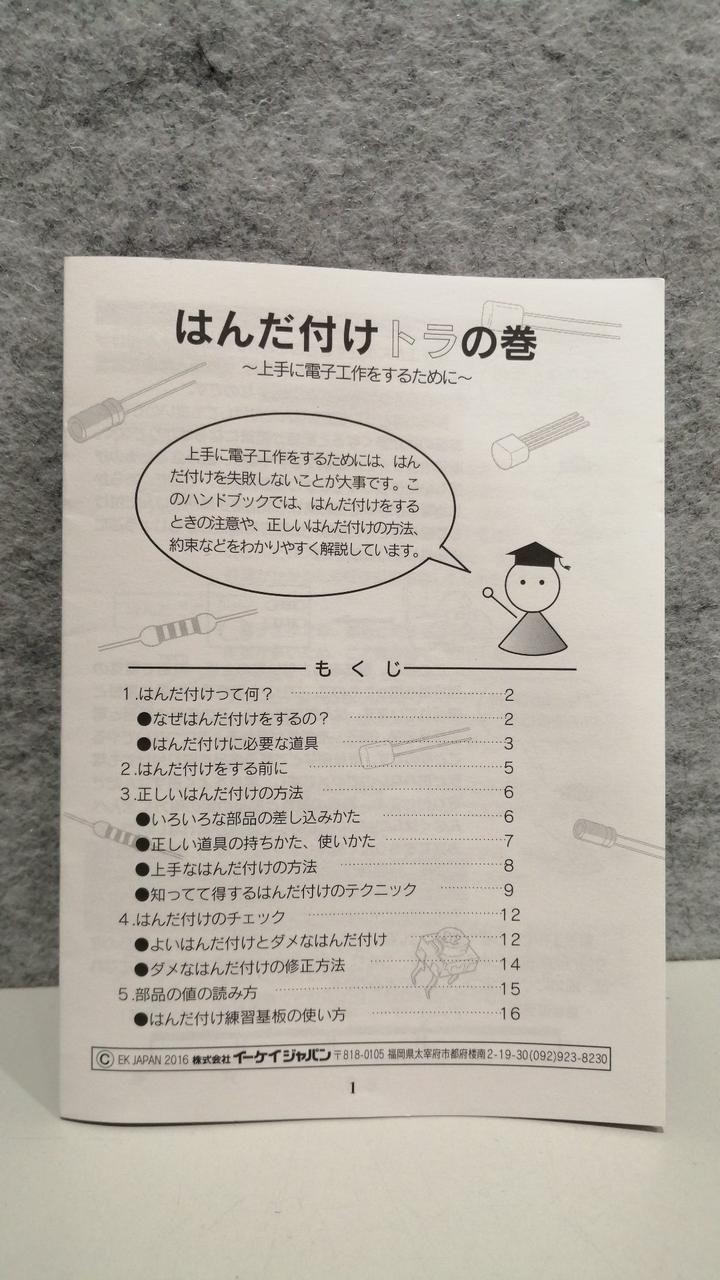 はんだ付けトラの巻
～上手に電子工作をするために～
上手に電子工作をするためには、はん
だ付けを失敗しないことが大事です。こ
のハンドブックでは、はんだ付けをする
ときの注意や、正しいはんだ付けの方法、
約束などをわかりやすく解説しています。
もくじ
1.はんだ付けって何？ 2
●なぜはんだ付けをするの？ 2
●はんだ付けに必要な道具 3
2.はんだ付けをする前に 5
3.正しいはんだ付けの方法 6
●いろいろな部品の差し込みかた 6
●正しい道具の持ちかた、使いかた 7
●上手なはんだ付けの方法 8
●知ってて得するはんだ付けのテクニック 9
4.はんだ付けのチェック 12
●よいはんだ付けとダメなはんだ付け 12
●ダメなはんだ付けの修正方法 14
5.部品の値の読み方 15
●はんだ付け練習基板の使い方 16
Ⓒ EK JAPAN 2016 株式会社イーケイジャパン 〒818-0105 福岡県太宰府市都府楼南2-19-30(092)923-8230
1